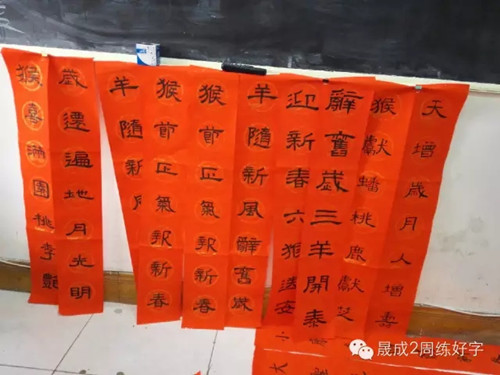 天增歲月人增壽
猴獻蟠桃鹿獻芝
辭舊歲三羊開泰
迎新春六猴送
羊隨新風辭舊歲
猴節正氣報新春
猴節正氣報新春
羊隨新
歲遍地月光明
猴喜滿園桃李艷
晟成2周练好字